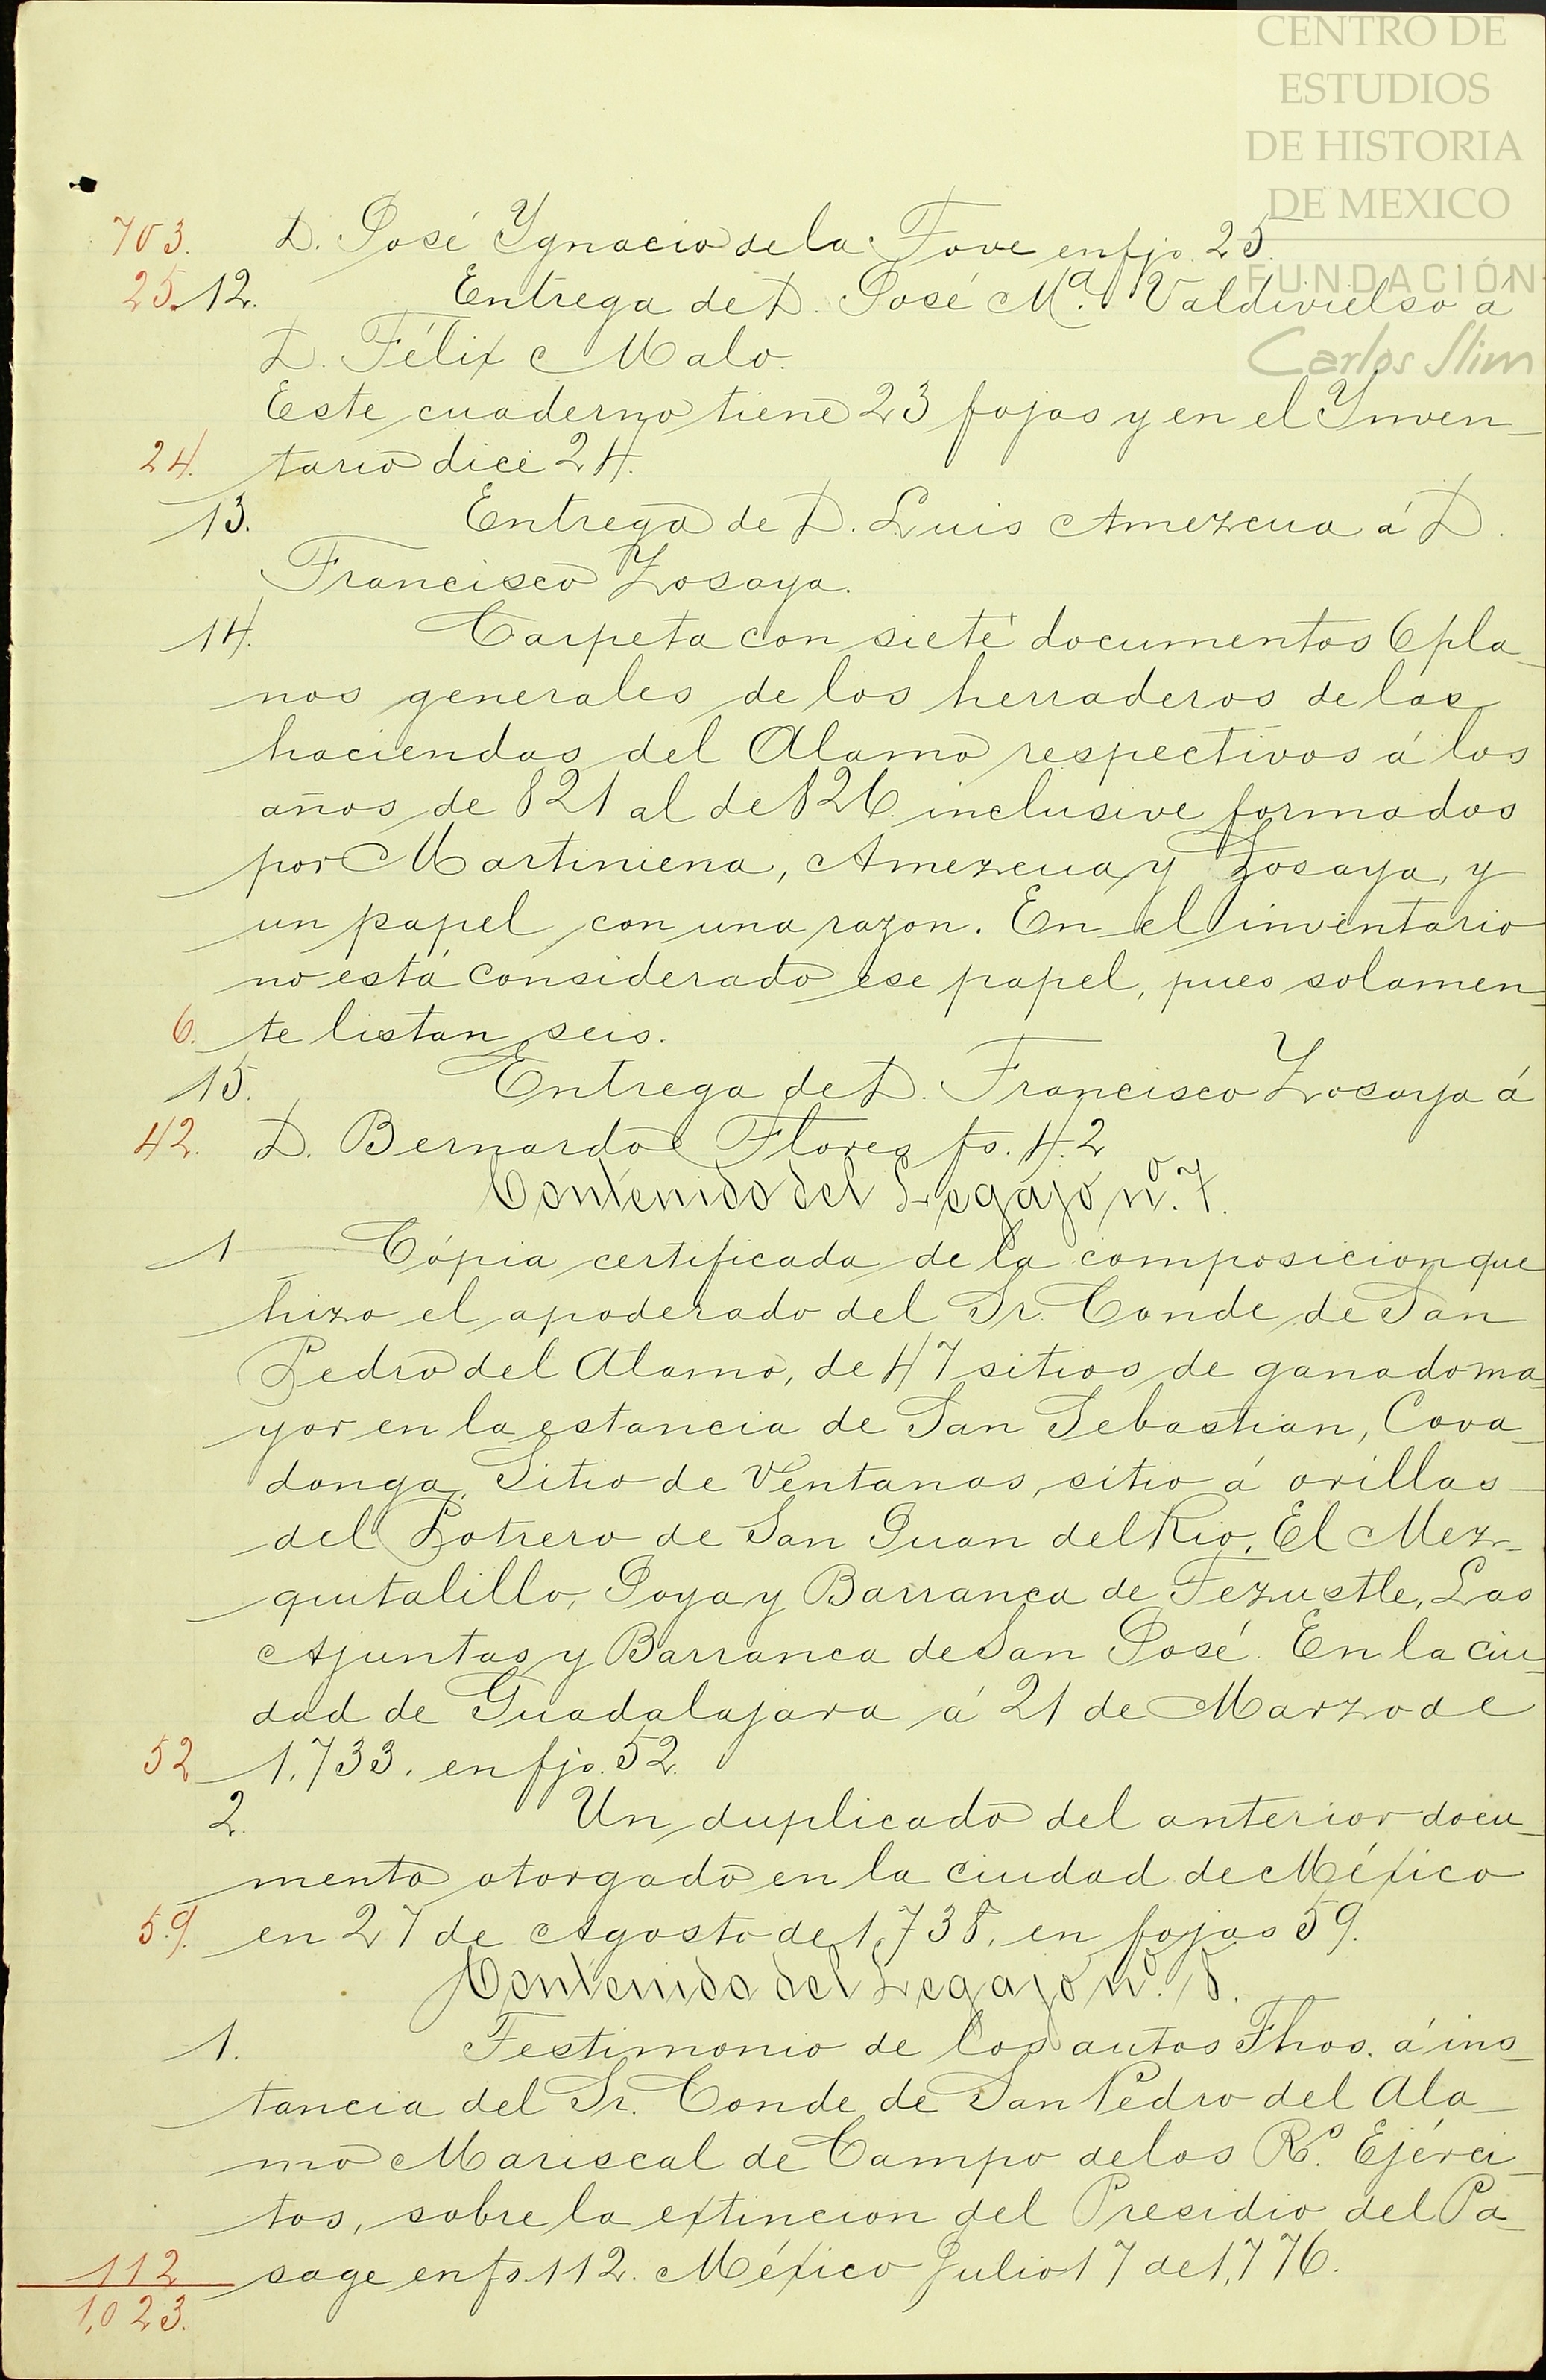 CENTRO DE
ESTUDIOS
DE HISTORIA
DE MEXICO
FUNDACIÓN
Carlos Slim
703. D. José Ygnacio de la Tove en fjs. 25.
25. 12. Entrega de D. José Mª. Valdivielso á
D. Félix Malo.
Este cuaderno tiene 23 fojas y en el Ynven-
24. tario dice 24.
13. Entrega de D. Luis Amezcua á D.
Francisco Zosaya.
14. Carpeta con siete documentos 6 pla-
nos generales de los herraderos de las
haciendas del Alamo respectivos á los
años de 821 al de 826 inclusive formados
por Martiniena, Amezcua y Zosaya, y
un papel con una razon. En el inventario
no está considerado ese papel, pues solamen-
6. te listan seis.
15. Entrega de D. Francisco Zosaya á
42. D. Bernardo Flores fs. 42
Contenido del Legajo nº. 7.
1 Cópia certificada de la composicion que
hizo el apoderado del Sr. Conde de San
Pedro del Alamo, de 47 sitios de ganado ma-
yor en la estancia de San Sebastian, Cova-
donga, Sitio de Ventanas, sitio á orillas
del Potrero de San Juan del Rio, El Mez-
quitalillo, Joya y Barranca de Tezustle, Las
Ajuntas y Barranca de San José. En la ciu-
dad de Guadalajara á 21 de Marzo de
52 1,733. en fjs. 52.
2. Un duplicado del anterior docu-
mento otorgado en la ciudad de México
59. en 27 de Agosto de 1,738, en fojas 59.
Contenido del Legajo nº. 8.
1. Testimonio de los autos Fhos. á ins-
tancia del Sr. Conde de San Pedro del Ala-
mo Mariscal de Campo de los Rs. Ejérci-
tos, sobre la extincion del Presidio del Pa-
112 sage en fs 112. México Julio 17 de 1,776.
1,023.